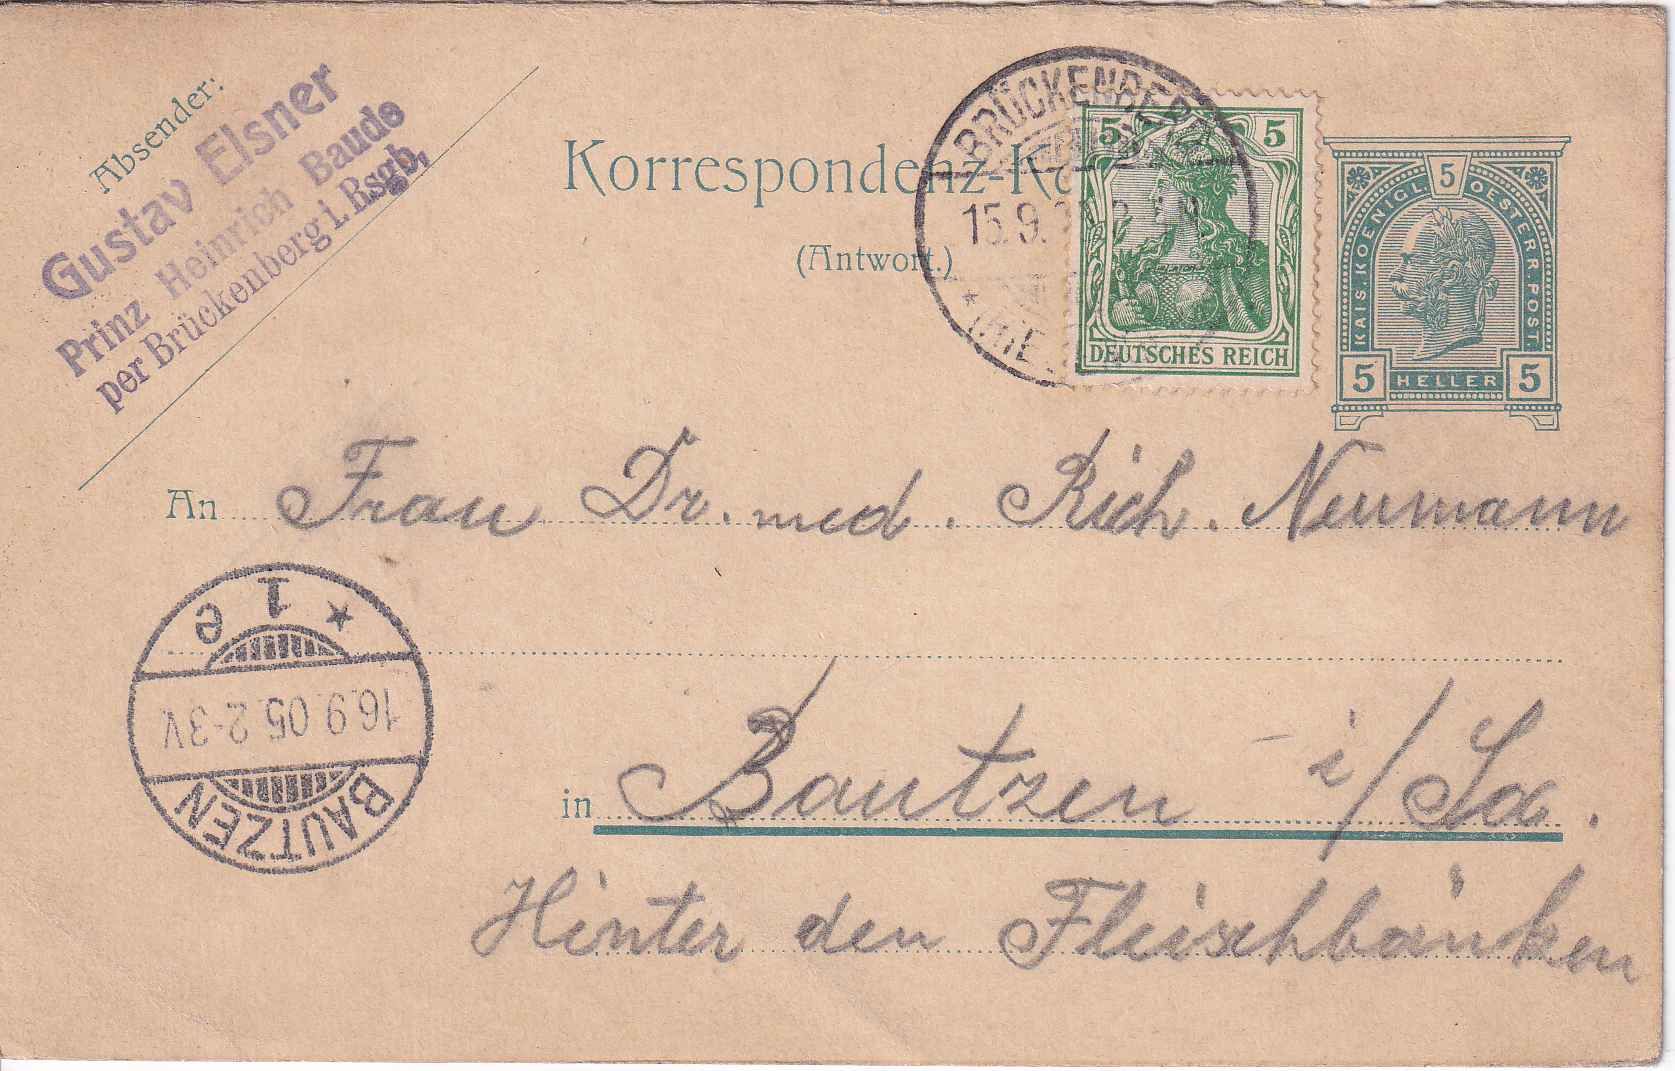 Absender:
Gustav Elsner
Prinz Heinrich Baude
per Brückenberg i. Rsgb.
Korrespondenz-Ka
(Antwort.)
BRÜCKENBERG
15.9.
* (RIE
5 5
DEUTSCHES REICH
5
KAIS. KOENIGL. OESTERR. POST.
5 HELLER 5
An Frau Dr. med. Rich. Neumann
* 1 e
16.9.05. 2-3V.
BAUTZEN
in Bautzen i/Sa.
Hinter den Fleischbänken